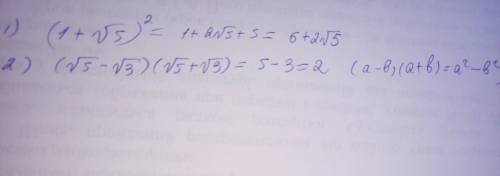 1) (1 + √5)² = 1 + 2√5 + 5 = 6 + 2√5
2) (√5 - √3)(√5 + √3) = 5 - 3 = 2 (a-b)(a+b) = a² - b²